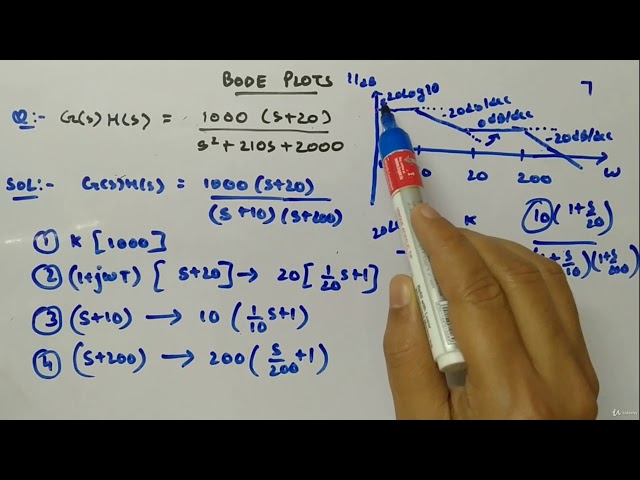 BODE PLOTS
Q:- G(s) H(s) = 1000 (s+20) / s²+210s+2000
SOL:- G(s)H(s) = 1000 (s+20) / (s+10) (s+200)
① K [1000]
② (1+jωT) [ s+20] → 20[ 1/20 s+1]
③ (s+10) → 10 ( 1/10 s+1)
④ (s+200) → 200 ( s/200 +1)
20log10
-20dB/dec
0dB/dec
-20dB/dec
20 200 ω
K
10 (1+s/20)
(1+s/10)(1+s/200)